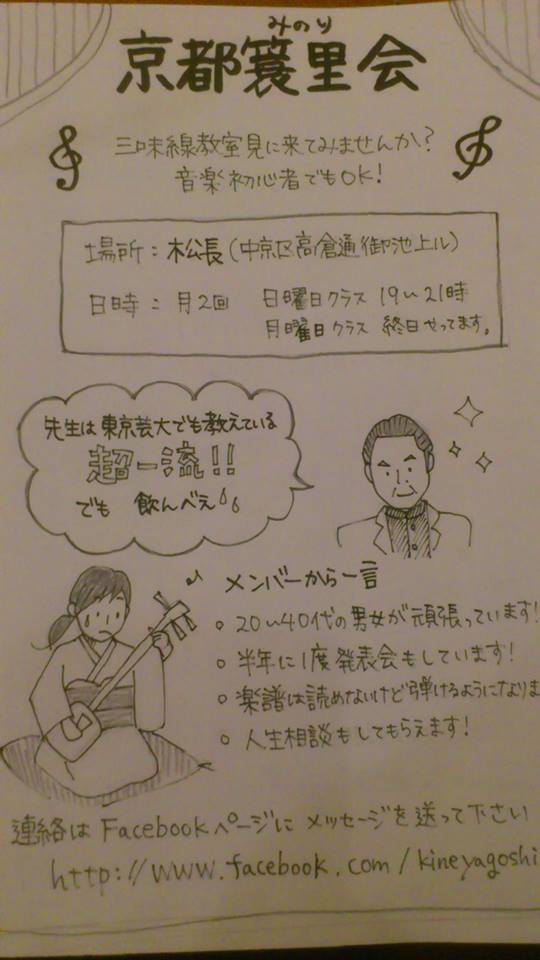 みのり
京都簑里会
三味線教室見に来てみませんか?
音楽初心者でもOK!
場所：松長(中京区高倉通御池上ル)
日時：月2回 日曜日クラス 19〜21時
月曜日クラス 終日やってます。
先生は東京芸大でも教えている
超一流!!
でも 飲んべえ
メンバーから一言
○ 20〜40代の男女が頑張っています!
○ 半年に1度発表会もしています!
○ 楽譜は読めないけど弾けるようになりま
○ 人生相談もしてもらえます!
連絡は Facebookページに メッセージを送って下さい
http://www.facebook.com/kineyagoshi